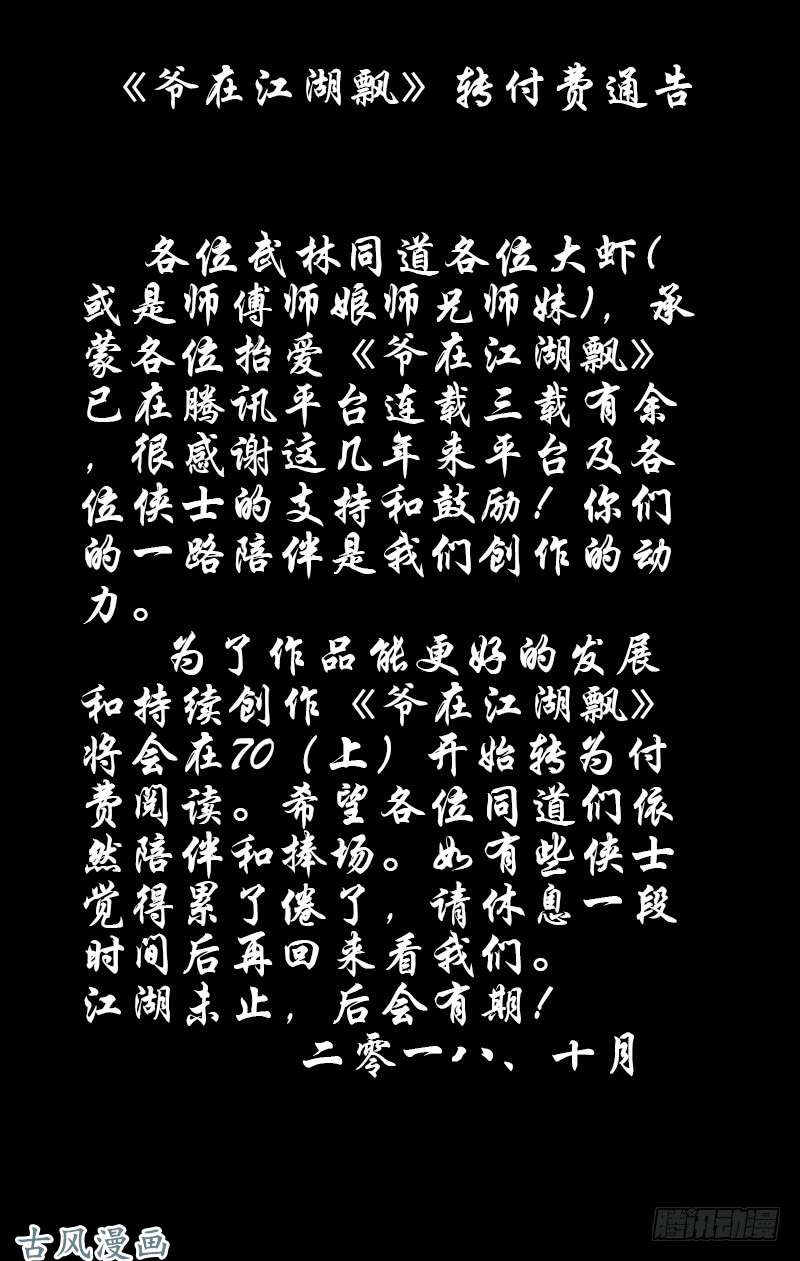 《爷在江湖飘》转付费通告
各位武林同道各位大虾(
或是师傅师娘师兄师妹)，承
蒙各位抬爱《爷在江湖飘》
已在腾讯平台连载三载有余
，很感谢这几年来平台及各
位侠士的支持和鼓励！你们
的一路陪伴是我们创作的动
力。
为了作品能更好的发展
和持续创作《爷在江湖飘》
将会在70（上）开始转为付
费阅读。希望各位同道们依
然陪伴和捧场。如有些侠士
觉得累了倦了，请休息一段
时间后再回来看我们。
江湖未止，后会有期！
二零一八、十月
古风漫画
腾讯动漫